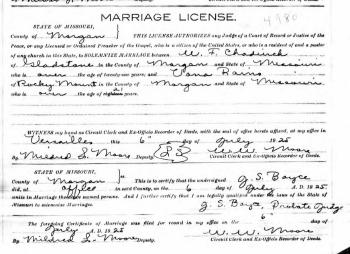 MARRIAGE LICENSE.
4980
STATE OF MISSOURI,
County of Morgan
THIS LICENSE AUTHORIZES any Judge of a Court of Record or Justice of the
Peace, or any Licensed or Ordained Preacher of the Gospel, who is a citizen of the United States, or who is a resident of and a pastor
of any church in this State, to SOLEMNIZE MARRIAGE between W. F.
of Gladstone in the County of Morgan and State of Missouri
who is over the age of twenty-one years; and Rains
of Rocky Mount in the County of Morgan and State of Missouri
who is over the age of eighteen years.
WITNESS my hand as Circuit Clerk and Ex-Officio Recorder of Deeds, with the seal of office hereto affixed, at my office in
Versailles this 6 day of July 1925
W. W. Moore
By Mildred L. Moore Deputy. L S Circuit Clerk and Ex-Officio Recorder of Deeds.
STATE OF MISSOURI,
County of Morgan ss This is to certify that the undersigned J. S. Boyce
did at office in said County, on the 6 day of July A. D. 1925
unite in Marriage the above named persons. And I further certify that I am legally qualified under the laws of the State
of Missouri to solemnize Marriages. J. S. Boyce, Probate Judge
The foregoing Certificate of Marriage was filed for record in my office on the 6 day of
July A. D. 1925 W. W. Moore
By Mildred L. Moore Deputy. Circuit Clerk and Ex-Officio Recorder of Deeds.